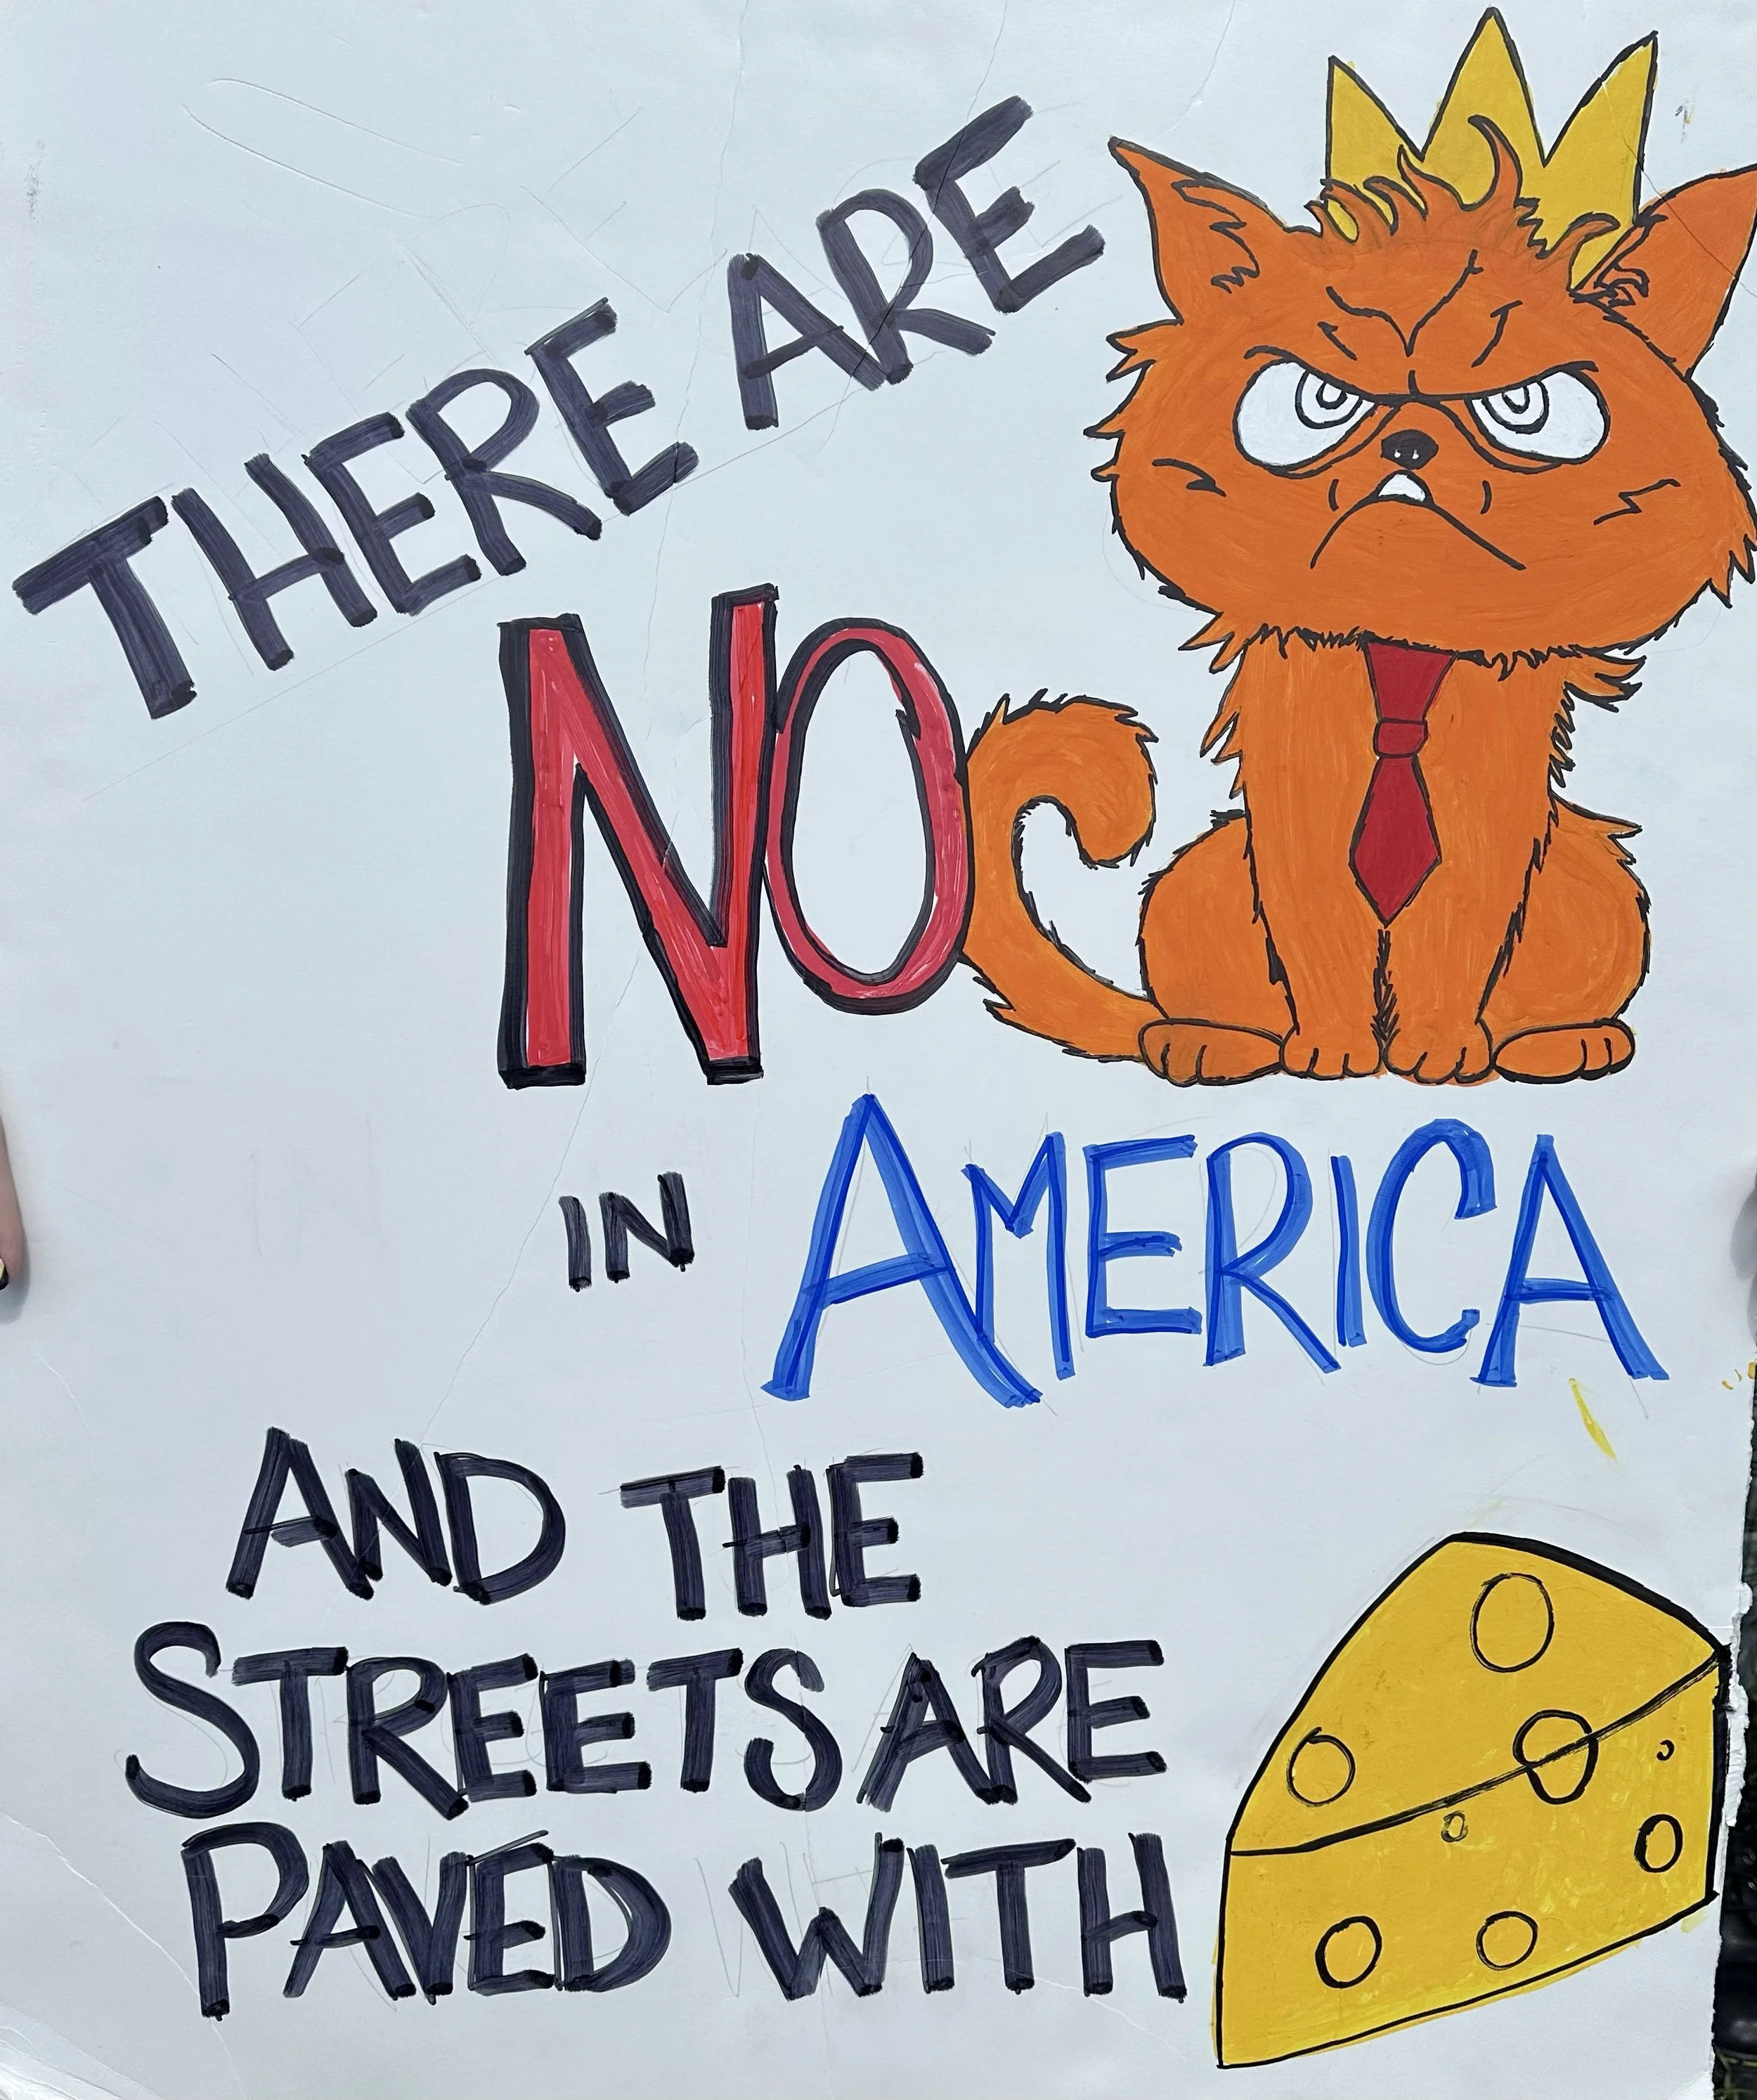 THERE ARE
NO
IN AMERICA
AND THE
STREETS ARE
PAVED WITH